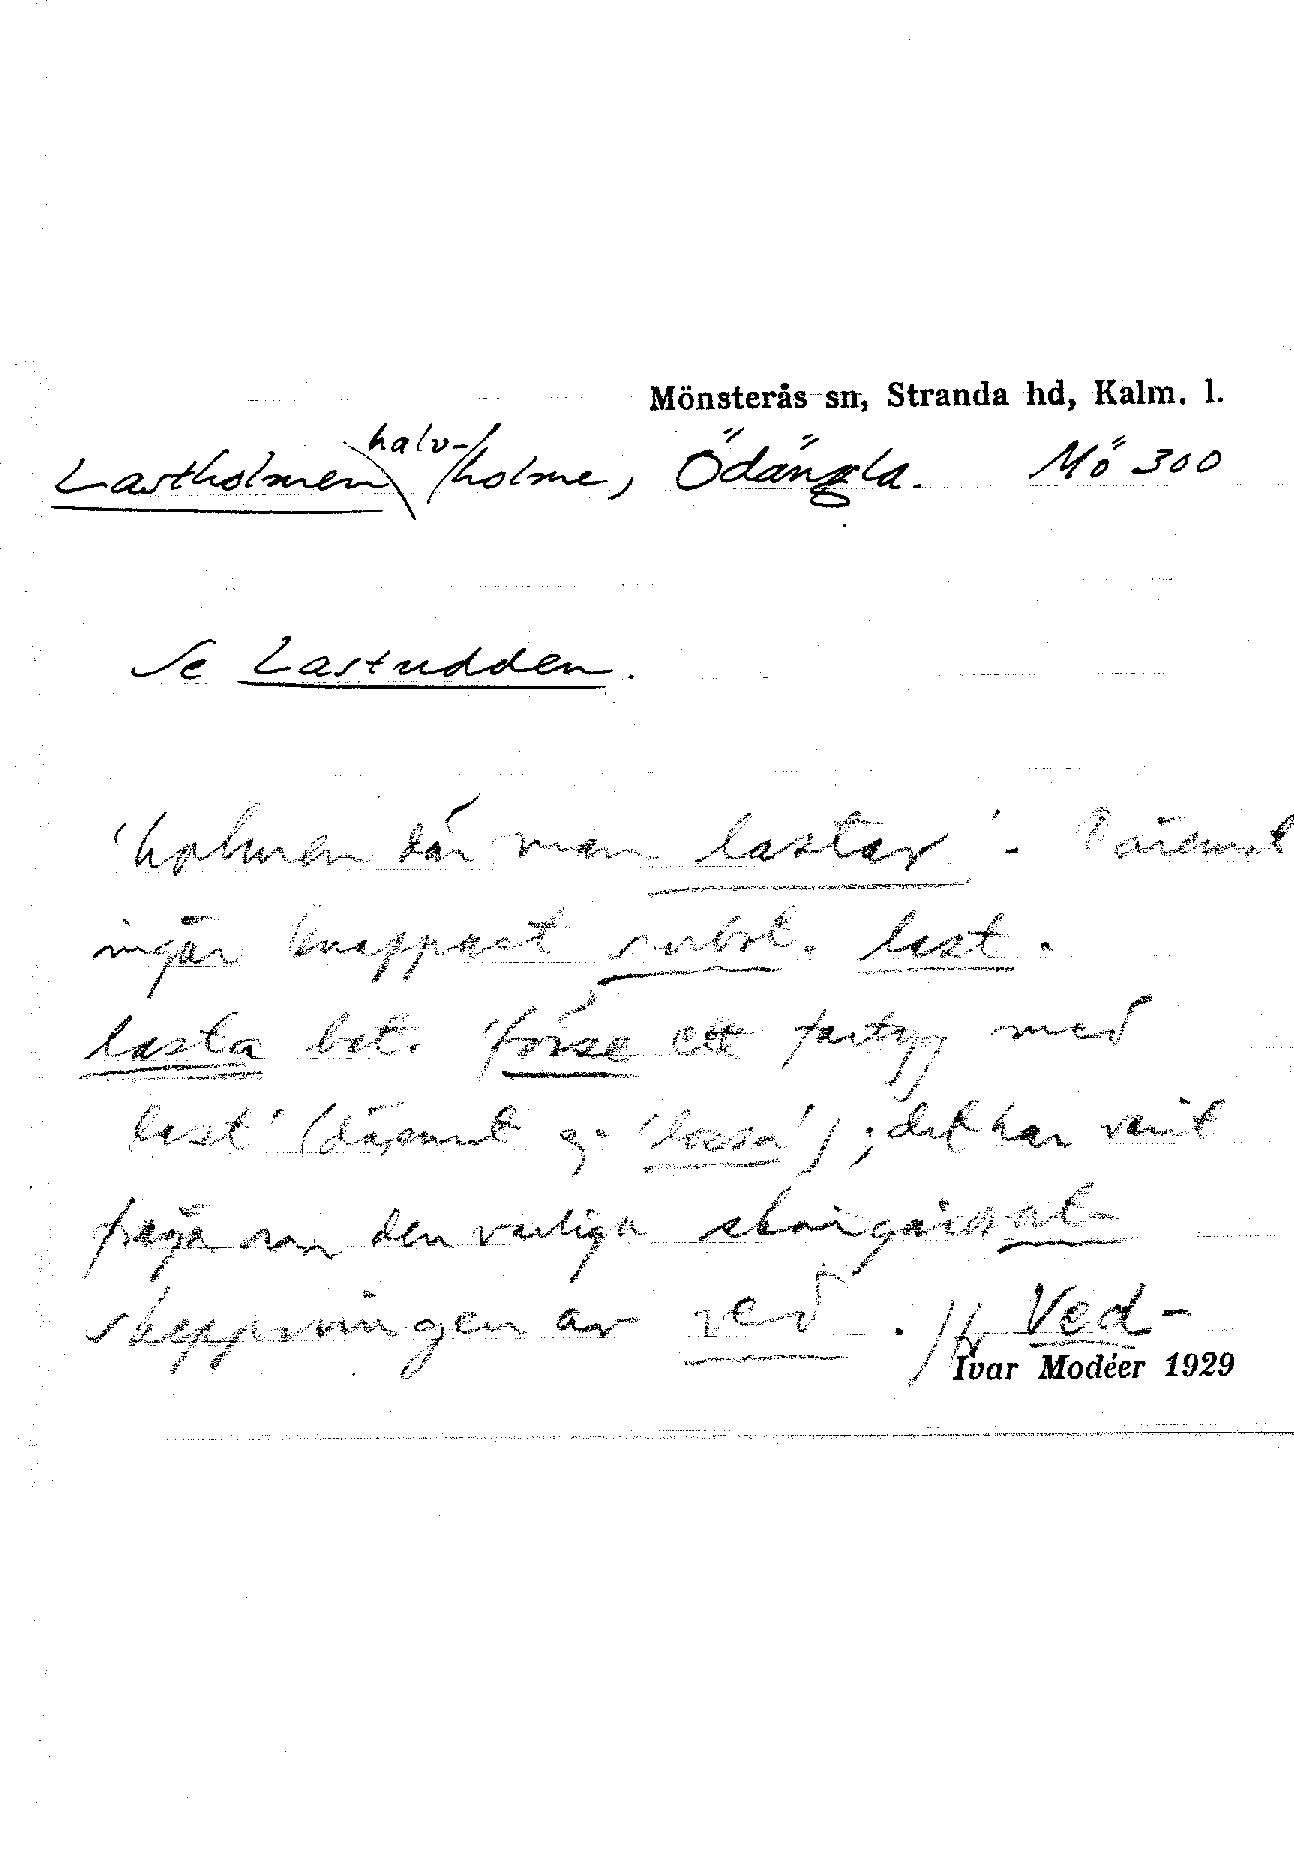 Mönsterås sn, Stranda hd, Kalm. l.
Lastholmen halv-/holme, Ödängla. Mö 300
Se Lastudden.
'holmen där man lastar'. Däremot
ingår knappast subst. last.
lasta bet. 'förse ett fartyg med
last' (däremot ej 'lossa'); det har varit
fråga om den vanliga skärgårdsut-
skeppningen av ved. /Jfr Ved-
Ivar Modéer 1929